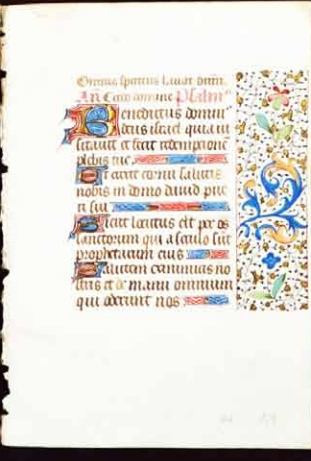 Omnis spiritus laudet dnm.
An̄ Cum Psalm
Benedictus domin
deus israel quia ui
sitauit et fecit redemptione
plebis sue
Et erexit cornu salutis
nobis in domo dauid pue
ri sui
Sicut locutus est per os
sanctorum qui a seculo sūt
prophetarum eius
Salutem ex inimicis no
stris et de manu omnium
qui oderunt nos